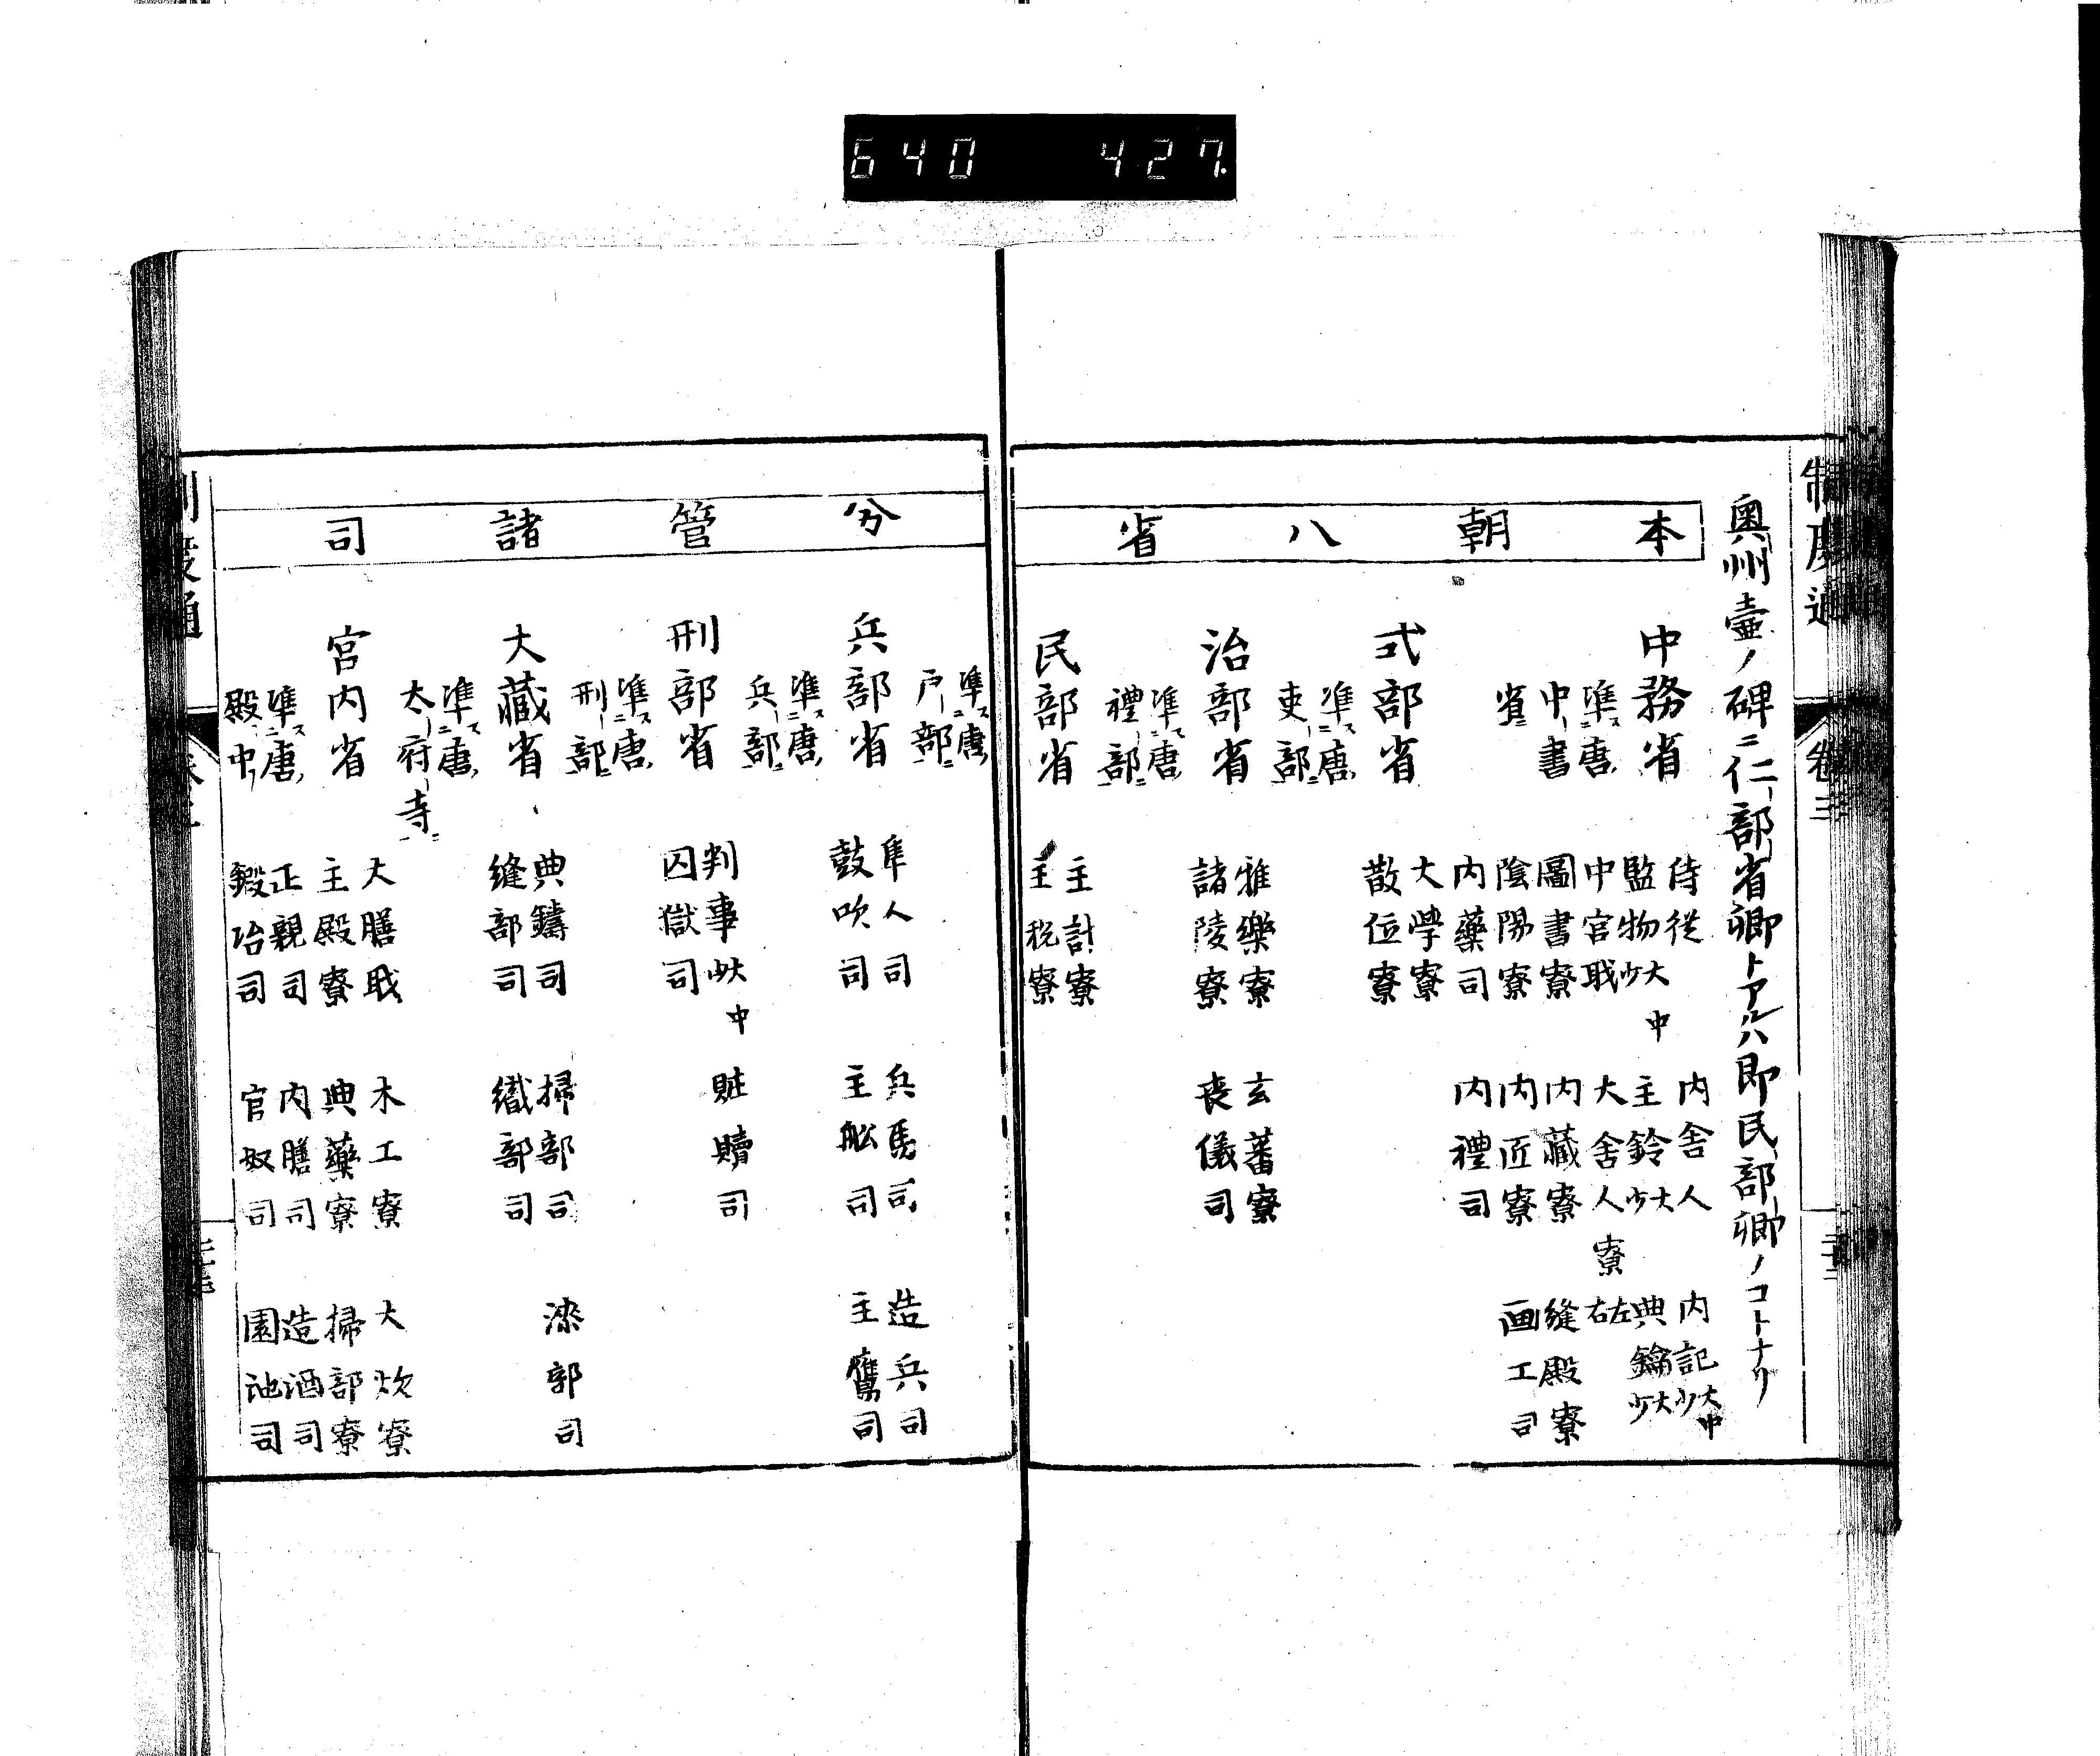 640 427.
制度通
卷三
奥州壷ノ碑ニ仁部省卿トアルハ即民部卿ノコトナリ
本朝八省
中務省
準スニ唐ノ
中書
省ニ
侍從
內舍人
內記大中少
監物大中少
主鈴大少
典鑰大少
中宮職
大舍人寮
左右
圖書寮
內藏寮
縫殿寮
陰陽寮
內匠寮
画工司
內藥司
內禮司
式部省
準スニ唐ノ
吏部ニ
大學寮
散位寮
治部省
準スニ唐ノ
禮部ニ
雅樂寮
玄蕃寮
諸陵寮
喪儀司
民部省
主計寮
主税寮
分管諸司
準スニ唐ノ
戸部ニ
兵部省
準スニ唐ノ
兵部ニ
隼人司
兵馬司
造兵司
鼓吹司
主船司
主鷹司
刑部省
準スニ唐ノ
刑部ニ
判事大中少
贓贖司
囚獄司
大藏省
準スニ唐ノ
太府寺ニ
典鑄司
掃部司
漆部司
縫部司
織部司
宮内省
準スニ唐ノ
殿中
大膳職
木工寮
大炊寮
主殿寮
典藥寮
掃部寮
正親司
內膳司
造酒司
鍛冶司
官奴司
園池司